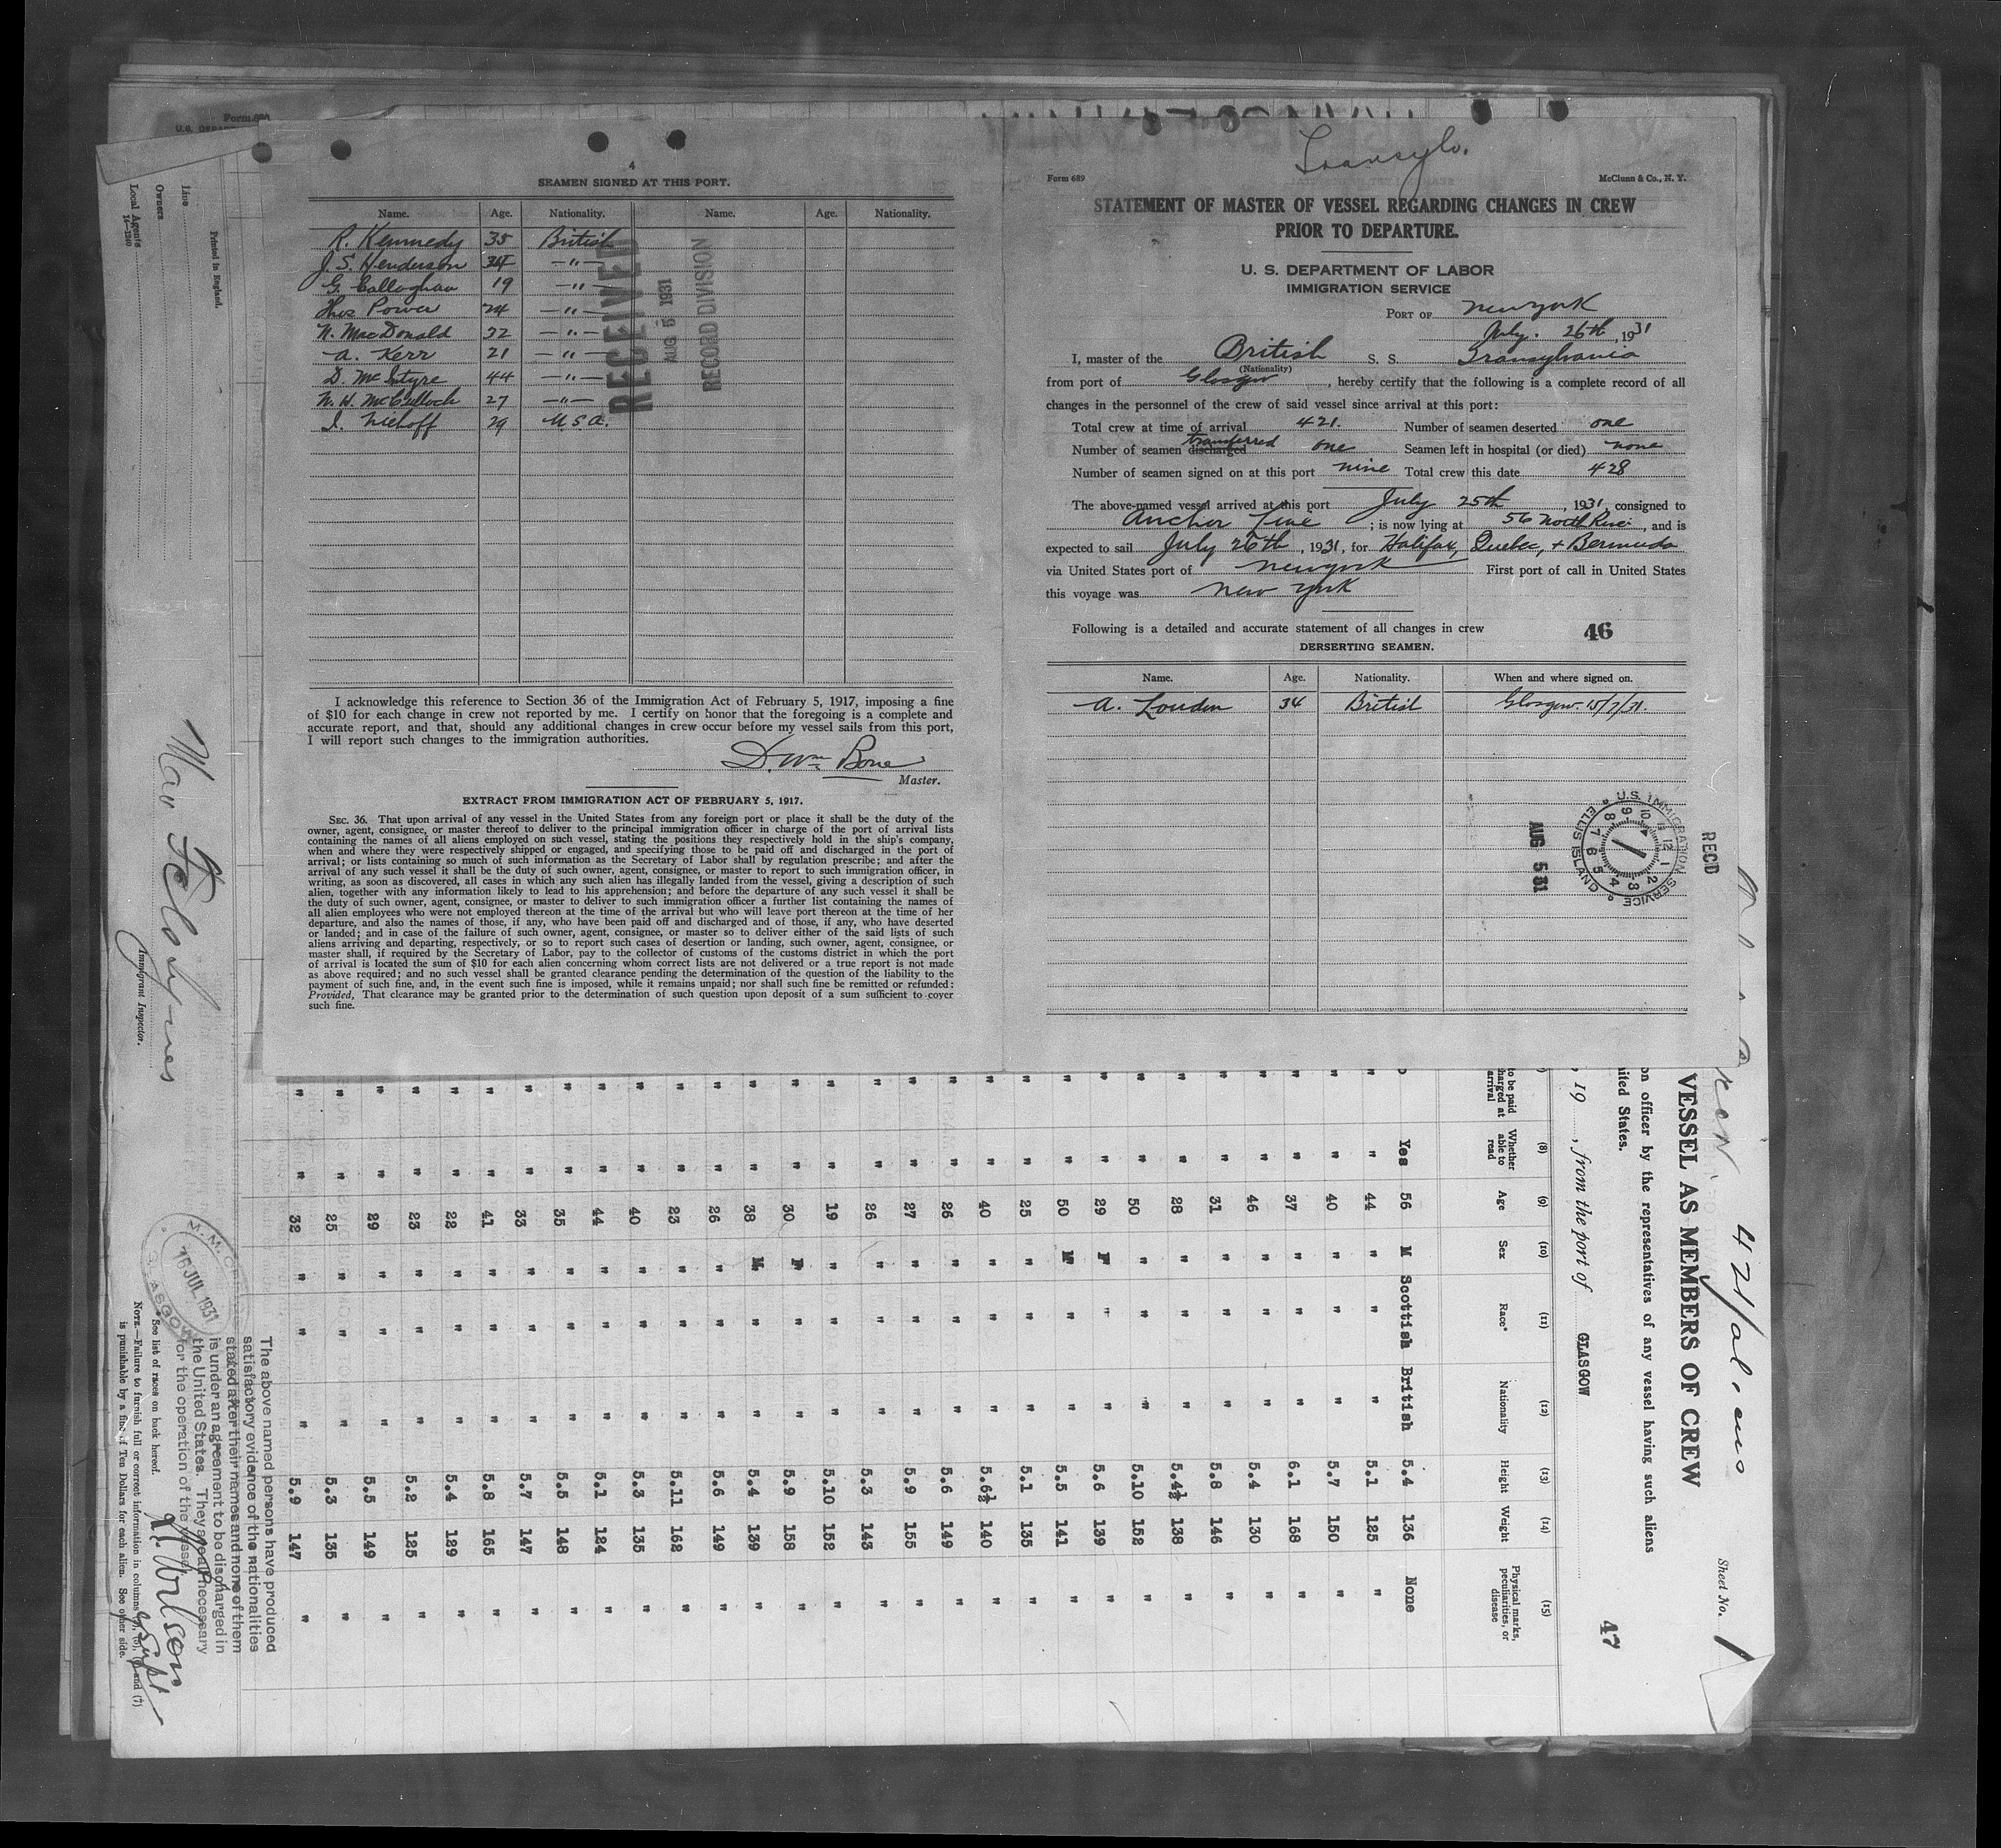 4
SEAMEN SIGNED AT THIS PORT.
Name. Age. Nationality. Name. Age. Nationality.
R. Kennedy 35 British
J. S. Henderson 34 —"—
G. Callaghan 19 —"—
Thos Power 24 —"—
N. MacDonald 32 —"—
A. Kerr 21 —"—
D. McIntyre 44 —"—
N. W. McCulloch 27 —"—
I. Niehoff 29 U.S.A.
RECEIVED
AUG 5 1931
RECORD DIVISION
I acknowledge this reference to Section 36 of the Immigration Act of February 5, 1917, imposing a fine
of $10 for each change in crew not reported by me. I certify on honor that the foregoing is a complete and
accurate report, and that, should any additional changes in crew occur before my vessel sails from this port,
I will report such changes to the immigration authorities.
D. Wm Bone
Master.
EXTRACT FROM IMMIGRATION ACT OF FEBRUARY 5, 1917.
SEC. 36. That upon arrival of any vessel in the United States from any foreign port or place it shall be the duty of the
owner, agent, consignee, or master thereof to deliver to the principal immigration officer in charge of the port of arrival lists
containing the names of all aliens employed on such vessel, stating the positions they respectively hold in the ship's company,
when and where they were respectively shipped or engaged, and specifying those to be paid off and discharged in the port of
arrival; or lists containing so much of such information as the Secretary of Labor shall by regulation prescribe; and after the
arrival of any such vessel it shall be the duty of such owner, agent, consignee, or master to report to such immigration officer, in
writing, as soon as discovered, all cases in which any such alien has illegally landed from the vessel, giving a description of such
alien, together with any information likely to lead to his apprehension; and before the departure of any such vessel it shall be
the duty of such owner, agent, consignee, or master to deliver to such immigration officer a further list containing the names of
all alien employees who were not employed thereon at the time of the arrival but who will leave port thereon at the time of her
departure, and also the names of those, if any, who have been paid off and discharged and of those, if any, who have deserted
or landed; and in case of the failure of such owner, agent, consignee, or master so to deliver either of the said lists of such
aliens arriving and departing, respectively, or so to report such cases of desertion or landing, such owner, agent, consignee, or
master shall, if required by the Secretary of Labor, pay to the collector of customs of the customs district in which the port
of arrival is located the sum of $10 for each alien concerning whom correct lists are not delivered or a true report is not made
as above required; and no such vessel shall be granted clearance pending the determination of the question of the liability to the
payment of such fine, and, in the event such fine is imposed, while it remains unpaid; nor shall such fine be remitted or refunded:
Provided, That clearance may be granted prior to the determination of such question upon deposit of a sum sufficient to cover
such fine.
Transylv.
Form 689 McClunn & Co., N. Y.
STATEMENT OF MASTER OF VESSEL REGARDING CHANGES IN CREW
PRIOR TO DEPARTURE.
U. S. DEPARTMENT OF LABOR
IMMIGRATION SERVICE
PORT OF New York
July. 26th, 1931
I, master of the British S. S. Transylvania
(Nationality)
from port of Glasgow, hereby certify that the following is a complete record of all
changes in the personnel of the crew of said vessel since arrival at this port:
Total crew at time of arrival 421. Number of seamen deserted one
transferred
Number of seamen discharged one Seamen left in hospital (or died) none
Number of seamen signed on at this port nine Total crew this date 428
The above-named vessel arrived at this port July 25th, 1931, consigned to
Anchor Line; is now lying at 56 North River, and is
expected to sail July 26th, 1931, for Halifax, Quebec, + Bermuda
via United States port of New York First port of call in United States
this voyage was New York
Following is a detailed and accurate statement of all changes in crew
46
DERSERTING SEAMEN.
Name. Age. Nationality. When and where signed on.
A. Louden 34 British Glasgow 15/7/31.
U.S. IMMIGRATION SERVICE ELLIS ISLAND
AUG 5 31
REC'D
421/al. ens
Sheet No. 1
VESSEL AS MEMBERS OF CREW
on officer by the representatives of any vessel having such aliens
ited States.
, 19 , from the port of GLASGOW
47
(8) (9) (10) (11) (12) (13) (14) (15)
to be paid harged at arrival Whether able to read Age Sex Race* Nationality Height Weight Physical marks, peculiarities, or disease
Yes 56 M Scottish British 5.4 136 None
" " 44 " " " 5.1 125 "
" " 40 " " " 5.7 150 "
" " 37 " " " 6.1 168 "
" " 46 " " " 5.4 130 "
" " 31 " " " 5.8 146 "
" " 28 " " " 5.4½ 138 "
" " 50 " " " 5.10 152 "
" " 29 F " " 5.6 139 "
" " 50 M " " 5.5 141 "
" " 25 " " " 5.1 135 "
" " 40 " " " 5.6½ 140 "
" " 26 " " " 5.6 149 "
" " 27 " " " 5.9 155 "
" " 26 " " " 5.3 143 "
" " 19 " " " 5.10 152 "
" " 30 F " " 5.9 158 "
" " 38 M. " " 5.4 139 "
" " 26 " " " 5.6 149 "
" " 23 " " " 5.11 162 "
" " 40 " " " 5.3 135 "
" " 44 " " " 5.1 124 "
" " 35 " " " 5.5 148 "
" " 33 " " " 5.7 147 "
" " 41 " " " 5.8 165 "
" " 22 " " " 5.4 129 "
" " 23 " " " 5.2 125 "
" " 29 " " " 5.5 149 "
" " 25 " " " 5.3 135 "
" " 32 " " " 5.9 147 "
The above named persons have produced
satisfactory evidence of the nationalities
stated after their names and none of them
is under an agreement to be discharged in
the United States. They are all necessary
for the operation of the vessel
Wilson
Supt
16 JUL 1931
* See list of races on back hereof.
NOTE.—Failure to furnish full or correct information in columns (7)
is punishable by a fine of Ten Dollars for each alien. See other side.
Immigrant Inspector.
Form 680
Printed in England.
Line
Owners
Local Agents